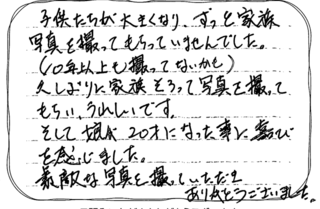 子供たちが大きくなり、ずっと家族
写真を撮ってもらっていませんでした。
(10年以上も撮ってないかも)
久しぶりに家族そろって写真を撮って
もらい、うれしいです。
そして娘が20才になった事に喜び
を感じました。
素敵な写真を撮っていただき
ありがとうございました。